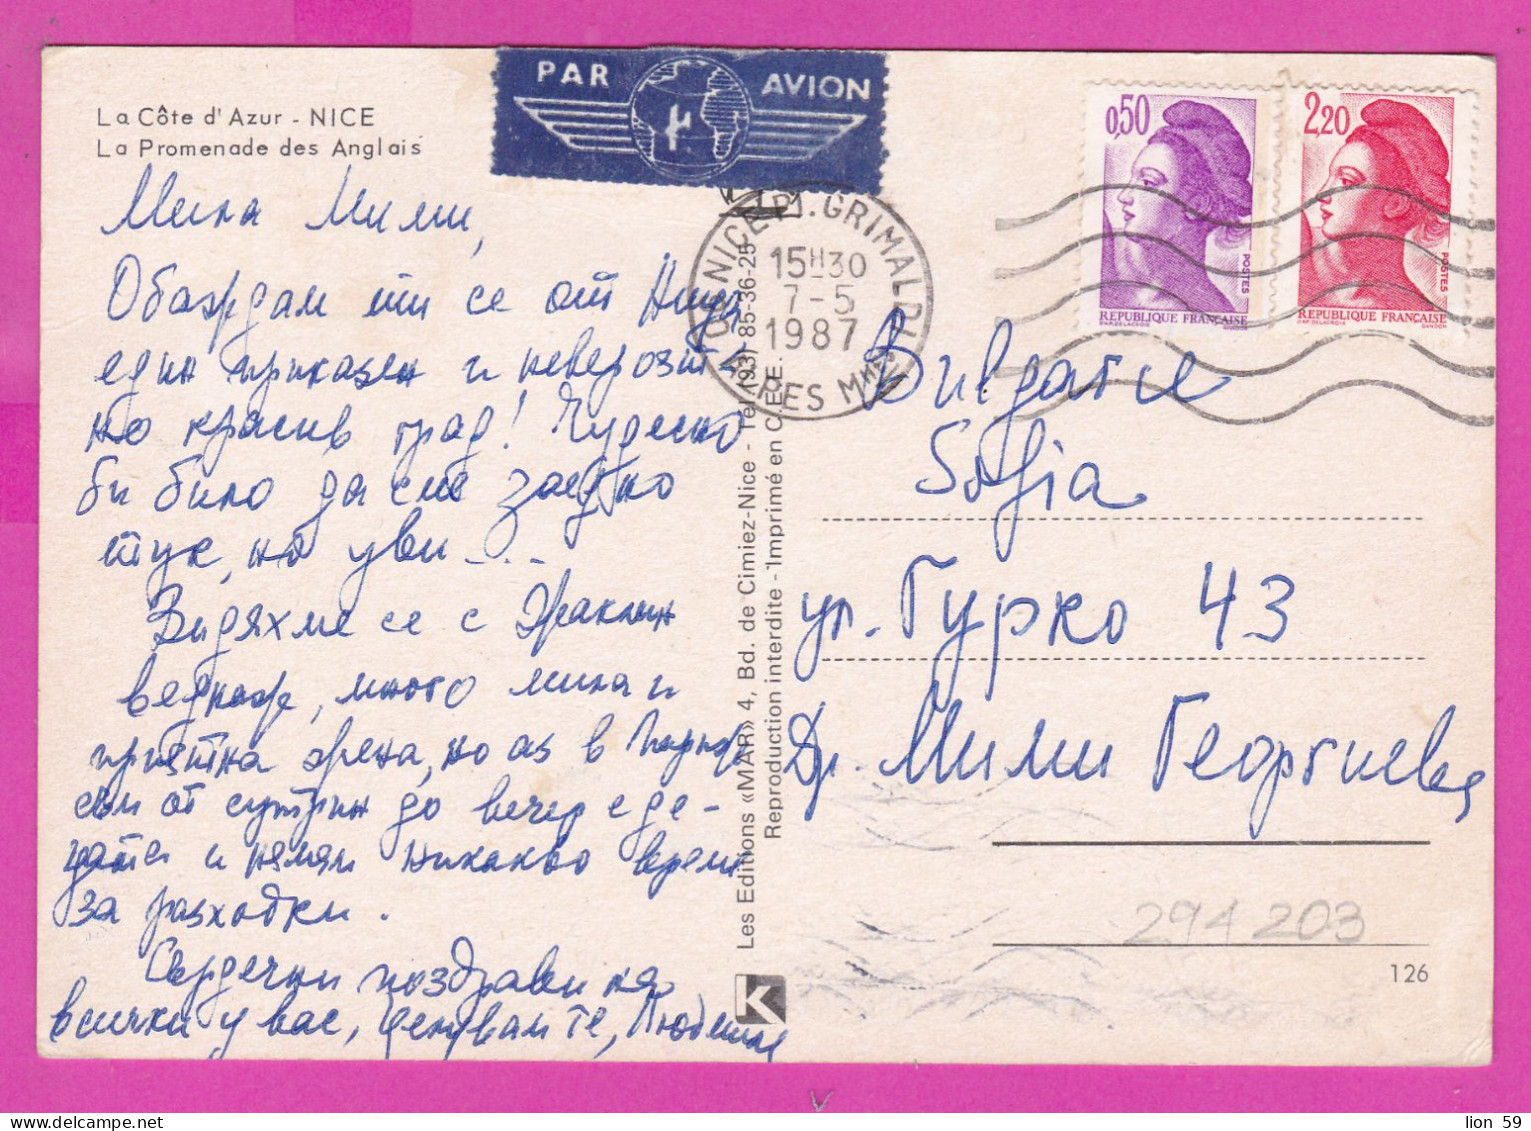 La Côte d'Azur - NICE
La Promenade des Anglais
PAR AVION
0,50
2,20
POSTES
POSTES
REPUBLIQUE FRANÇAISE
REPUBLIQUE FRANÇAISE
NICE PL. GRIMALDI
15H30
7-5
1987
ALPES MMES
Мила Мими,
Обаждам ти се от Ница
един приказен и невероят-
но красив град! Чудесно
би било да сме заедно
тук, но уви...
Видяхме се с
веднаж, много мила и
приятна жена, но аз в
съм от сутрин до вечер с де-
цата и нямам никакво време
за разходки.
Сърдечни поздрави на
всички у вас, целувам те, Людмила
Les Editions «MAR» 4, Bd. de Cimiez-Nice - Tel (93) 85-36-25
Reproduction interdite - Imprimé en C.E.E.
K
Bulgarie
Sofia
ул. Гурко 43
Др. Мими Георгиева
294203
126
lion 59